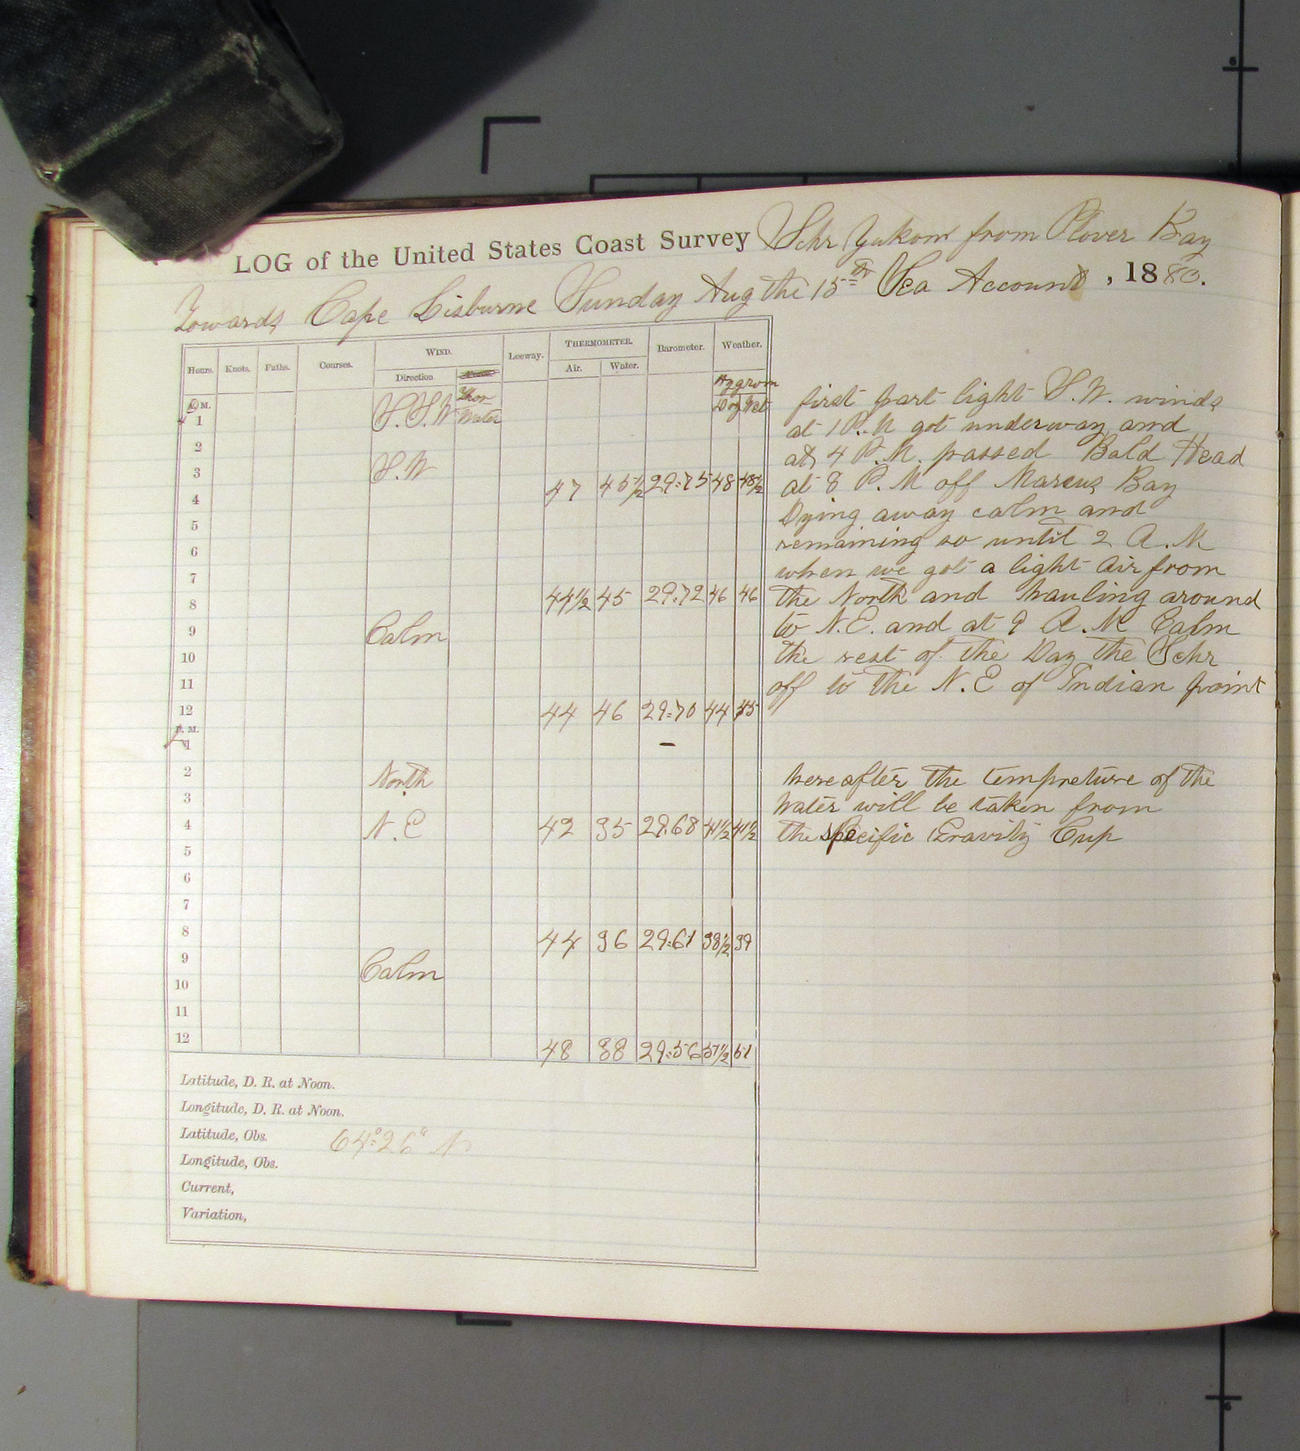 LOG of the United States Coast Survey Schr Yukon from Plover Bay
Towards Cape Lisburne Sunday Aug the 15th Sea Account, 1880.
Hours. Knots. Faths. Courses. WIND. Leeway. THERMOMETER. Barometer. Weather.
Direction Ther Water Air. Water. Hygrom Dry Wet
M. S.S.W
1
2
3 S.W
4 47 45 1/2 29.75 48 48 1/2
5
6
7
8 44 1/2 45 29.72 46 46
9 Calm
10
11
12 44 46 29.70 44 45
M.
1 -
2 North
3
4 N.E 42 35 29.68 41 1/2 41 1/2
5
6
7
8 44 36 29.61 38 1/2 39
9 Calm
10
11
12 48 38 29.56 51 1/2 51
Latitude, D. R. at Noon.
Longitude, D. R. at Noon.
Latitude, Obs. 64° 26" N
Longitude, Obs.
Current,
Variation,
first part light S.W. winds
at 1 P.M got underway and
at 4 P.M. passed Bald Head
at 8 P.M off Marcus Bay
Dying away calm and
remaining so until 2 A.M
when we got a light air from
the North and hauling around
to N.E. and at 9 A.M Calm
the rest of the Day the Schr
off to the N.E of Indian point
hereafter the tempreture of the
Water will be taken from
the specific Gravity Cup